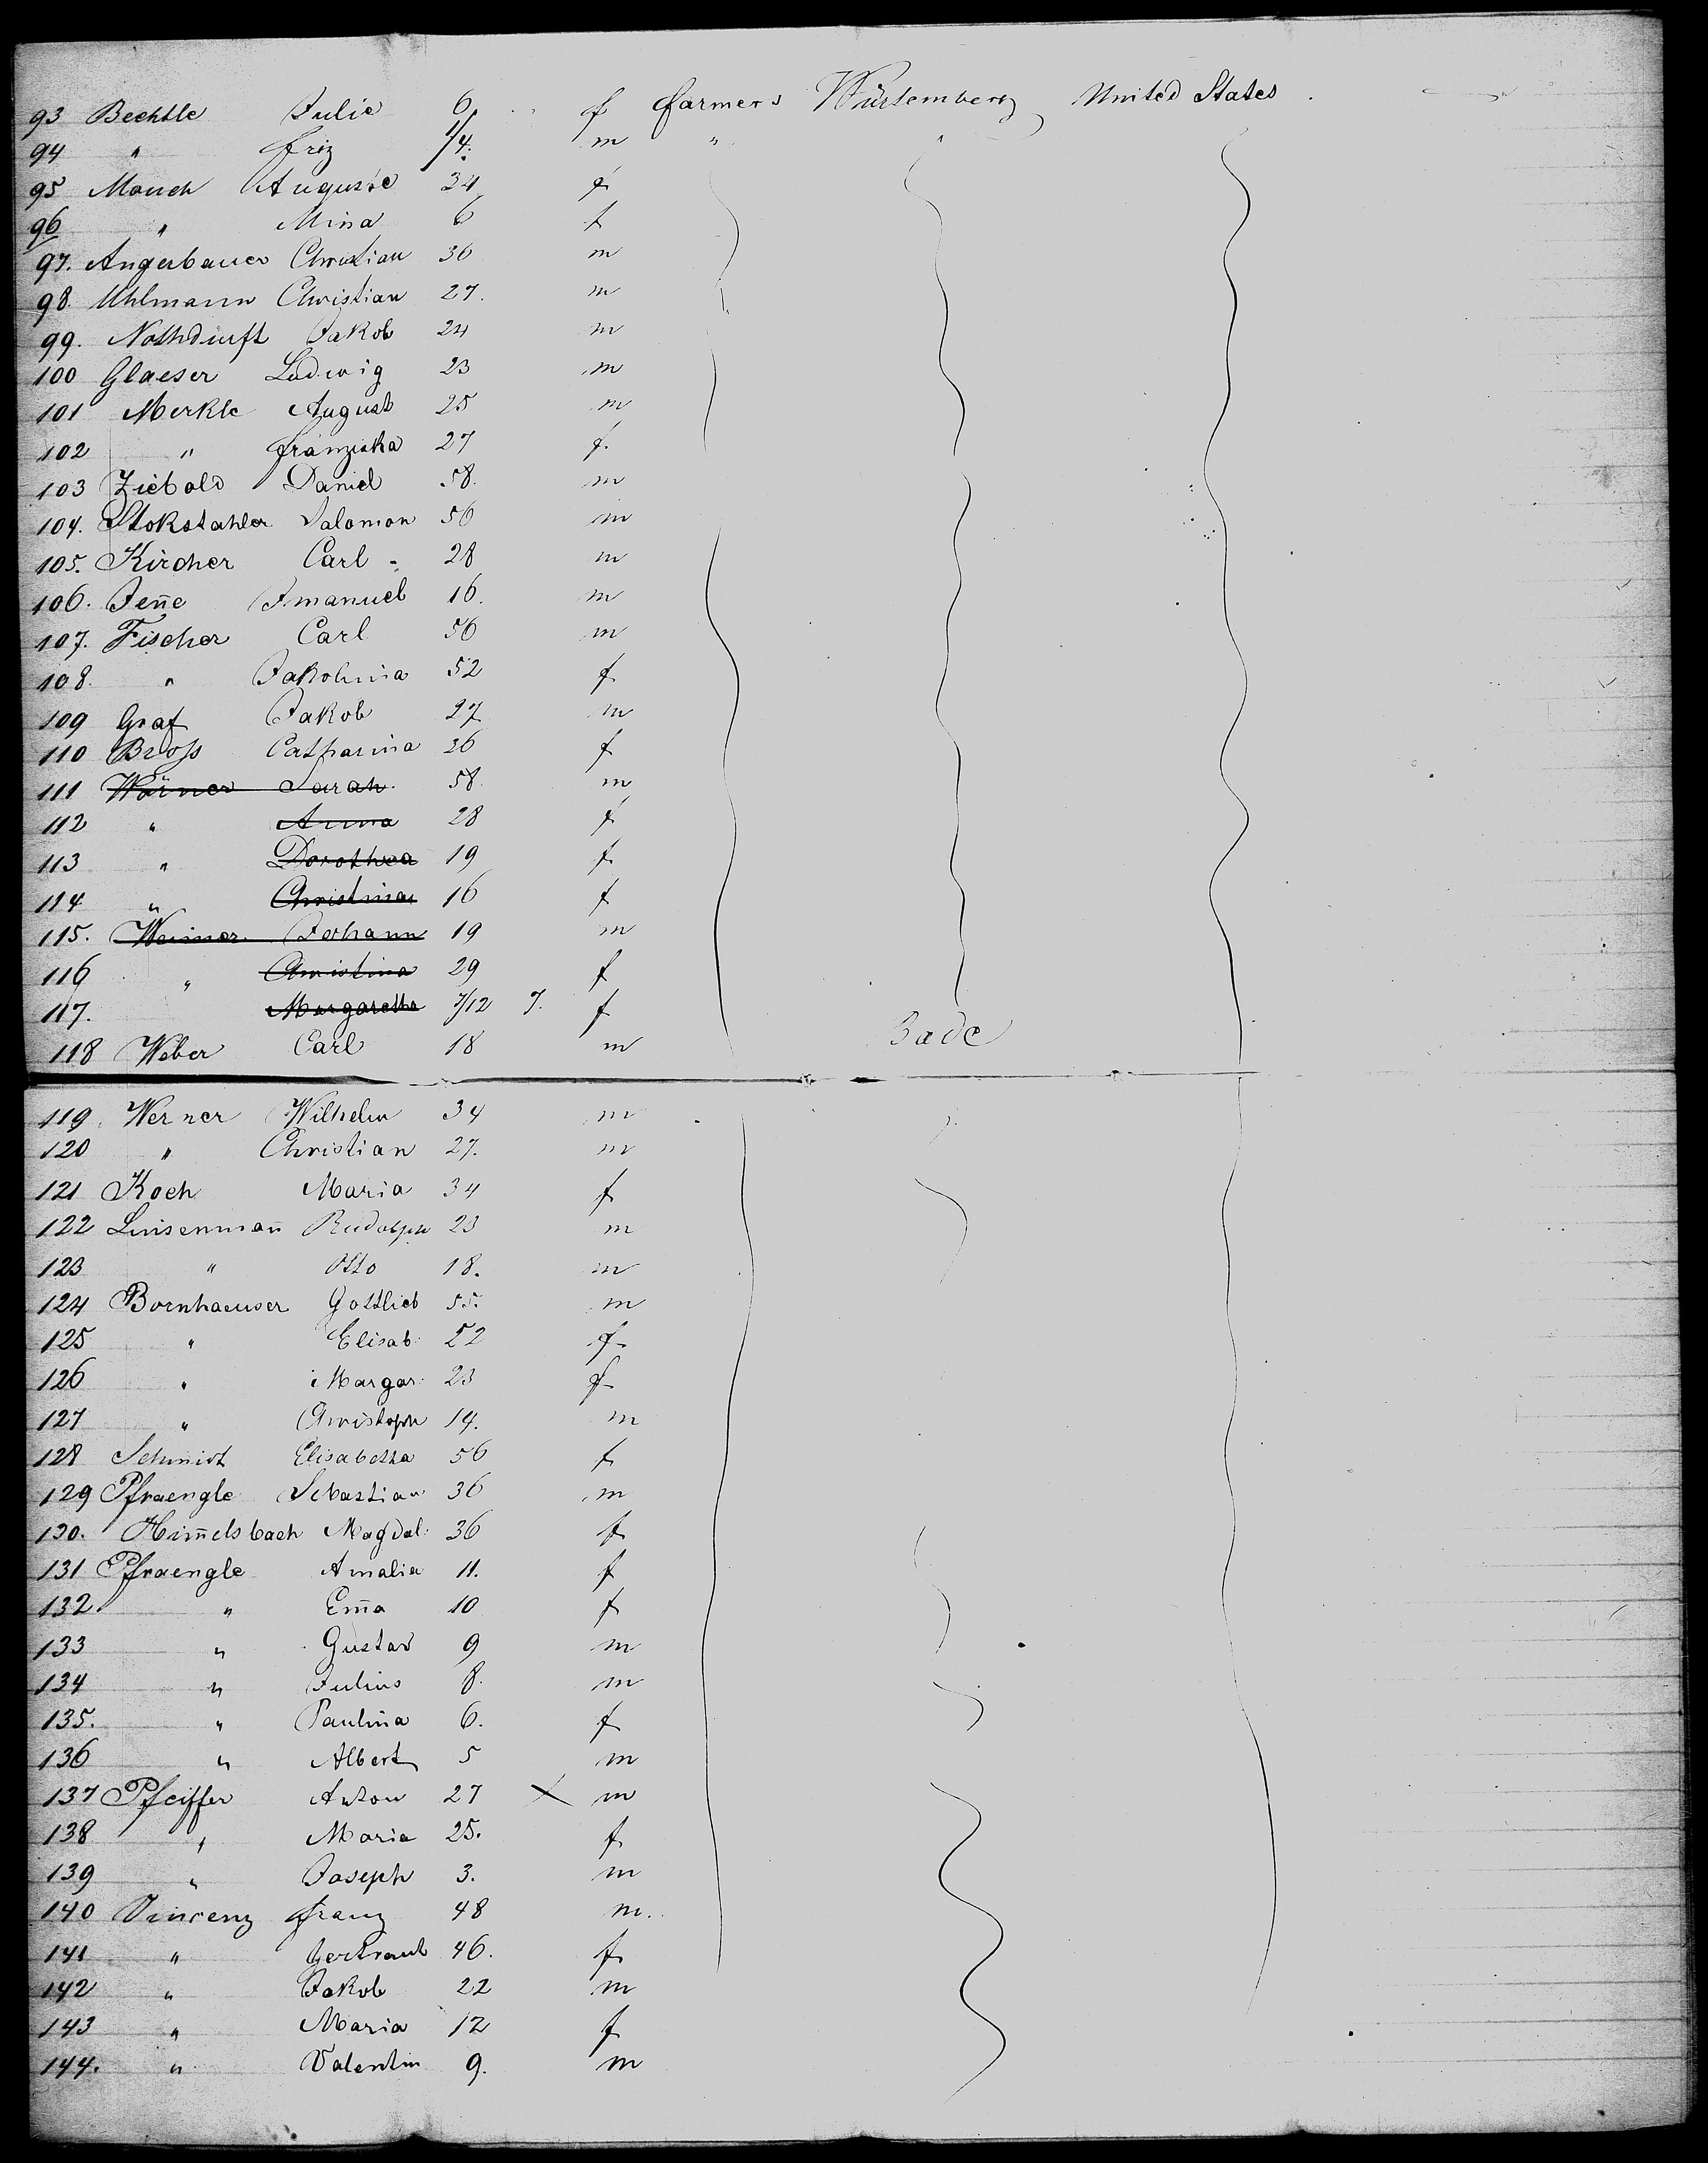 93 Bechtle Julie 6. f farmers Würtemberg United States
94 " friz 1/4. m " "
95 Mauch Auguste 34 f
96 " Mina 6 f
97. Angerbauer Christian 36 m
98. Uhlmann Christian 27. m
99. Nothdurft Jakob 24 m
100 Glaeser Ludwig 23 m
101 Merkle August 25 m
102 " franziska 27 f.
103 Ziebold Daniel 58. m
104. Stokstahler Salomon 56 m
105. Kircher Carl 28 m
106. Jen̄e Imanuel 16. m
107. Fischer Carl 56 m
108. " Jakobina 52 f
109 Graf Jakob 27 m
110 Broſs Catharina 26 f
111 Wörner Sarah 58. m
112 " Anna 28 f
113 " Dorothea 19 f
114 " Christina 16 f
115. Weimer Johann 19 m
116 " Christina 29 f
117. Margaretha 7/12 7. f
118 Weber Carl 18 m Bade
119. Werner Wilhelm 34 m
120 " Christian 27. m
121 Koch Maria 34 f
122 Linsenman̄ Rudolph 23 m
123 " Otto 18. m
124 Bornhaeuser Gottlieb 55. m
125 " Elisab. 52 f
126 " Margar. 23 f
127 " Christoph 14. m
128 Schmidt Elisabetha 56 f
129 Pfraengle Sebastian 36 m
130. Him̄elsbach Magdal. 36 f
131 Pfraengle Amalia 11. f
132. " Em̄a 10 f
133 " Gustav 9 m
134 " Julius 8. m
135. " Paulina 6. f
136 " Albert 5 m
137 Pfeiffer Anton 27 X m
138 " Maria 25. f
139 " Joseph 3. m
140 Vincenz franz 48 m.
141 " Gertraud 46. f
142 " Jakob 22 m
143 " Maria 12 f
144. " Valentin 9. m